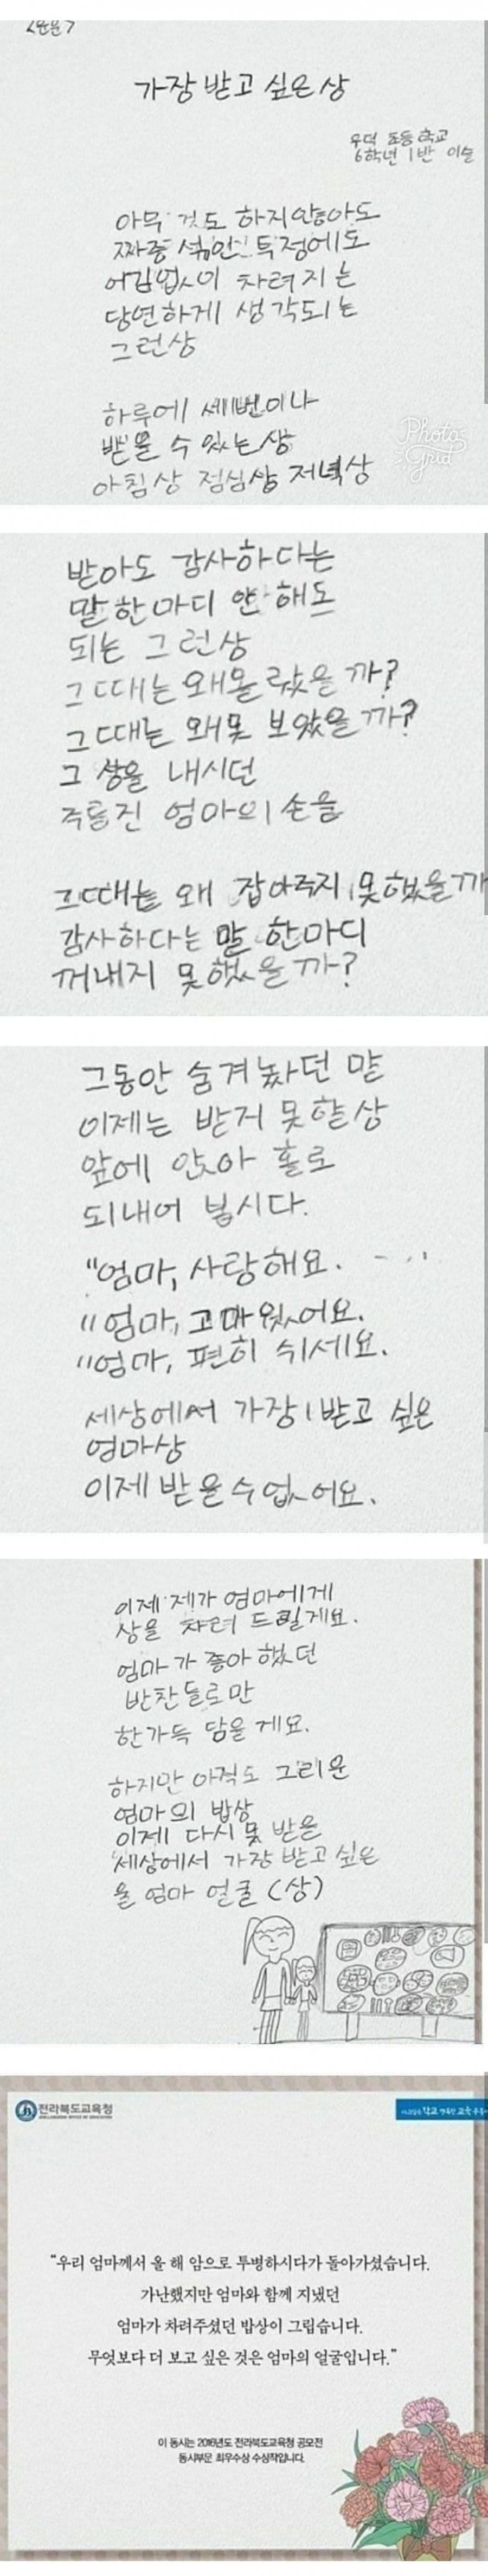 <운문>
가장 받고 싶은 상
우덕 초등학교
6학년 1반 이슬
아무 것도 하지 않아도
짜증 섞인 투정에도
어김없이 차려지는
당연하게 생각되는
그런상
하루에 세번이나
받을 수 있는 상
아침상 점심상 저녁상
Photo
Grid
받아도 감사하다는
말 한마디 안 해도
되는 그런상
그때는 왜 몰랐을까?
그때는 왜 못 보았을까?
그 상을 내시던
주름진 엄마의 손을
그때는 왜 잡아주지 못했을까
감사하다는 말 한마디
꺼내지 못했을까?
그동안 숨겨놨던 말
이제는 받지 못할상
앞에 앉아 홀로
되내어 봅시다.
"엄마, 사랑해요.
"엄마, 고마웠어요.
"엄마, 편히 쉬세요.
세상에서 가장 받고 싶은
엄마상
이제 받을수 없어요.
이제 제가 엄마에게
상을 차려 드릴게요.
엄마가 좋아했던
반찬들로만
한가득 담을게요.
하지만 아직도 그리운
엄마의 밥상
이제 다시 못 받을
세상에서 가장 받고 싶은
울 엄마 얼굴 (상)
전라북도교육청
JEOLLABUKDO OFFICE OF EDUCATION
"우리 엄마께서 올 해 암으로 투병하시다가 돌아가셨습니다.
가난했지만 엄마와 함께 지냈던
엄마가 차려주셨던 밥상이 그립습니다.
무엇보다 더 보고 싶은 것은 엄마의 얼굴입니다."
이 동시는 2016년도 전라북도교육청 공모전
동시부문 최우수상 수상작입니다.